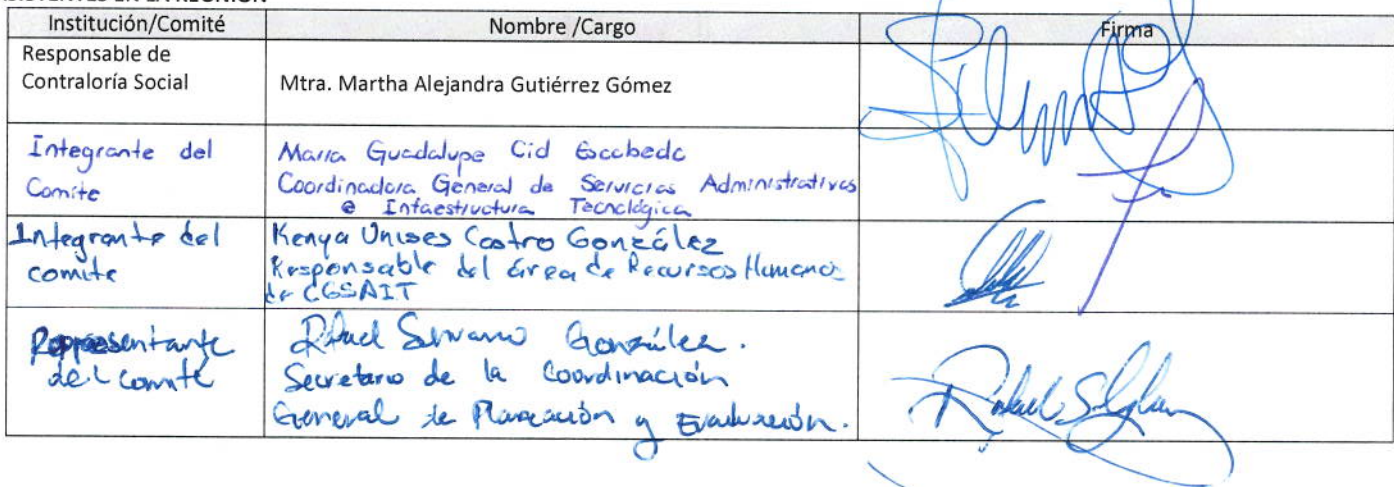 ASISTENTES EN LA REUNIÓN
Institución/Comité Nombre /Cargo Firma
Responsable de
Contraloría Social
Mtra. Martha Alejandra Gutiérrez Gómez
Integrante del
Comite
Maria Guadalupe Cid Escobedo
Coordinadora General de Servicios Administrativos
e Infaestructura Tecnológica
Integrante del
comite
Kenya Unises Castro González
Responsable del área de Recursos Humanos
de CGSAIT
Representante
del comité
Rafael Serrano González.
Secretario de la Coordinación
General de Planeación y Evaluación.